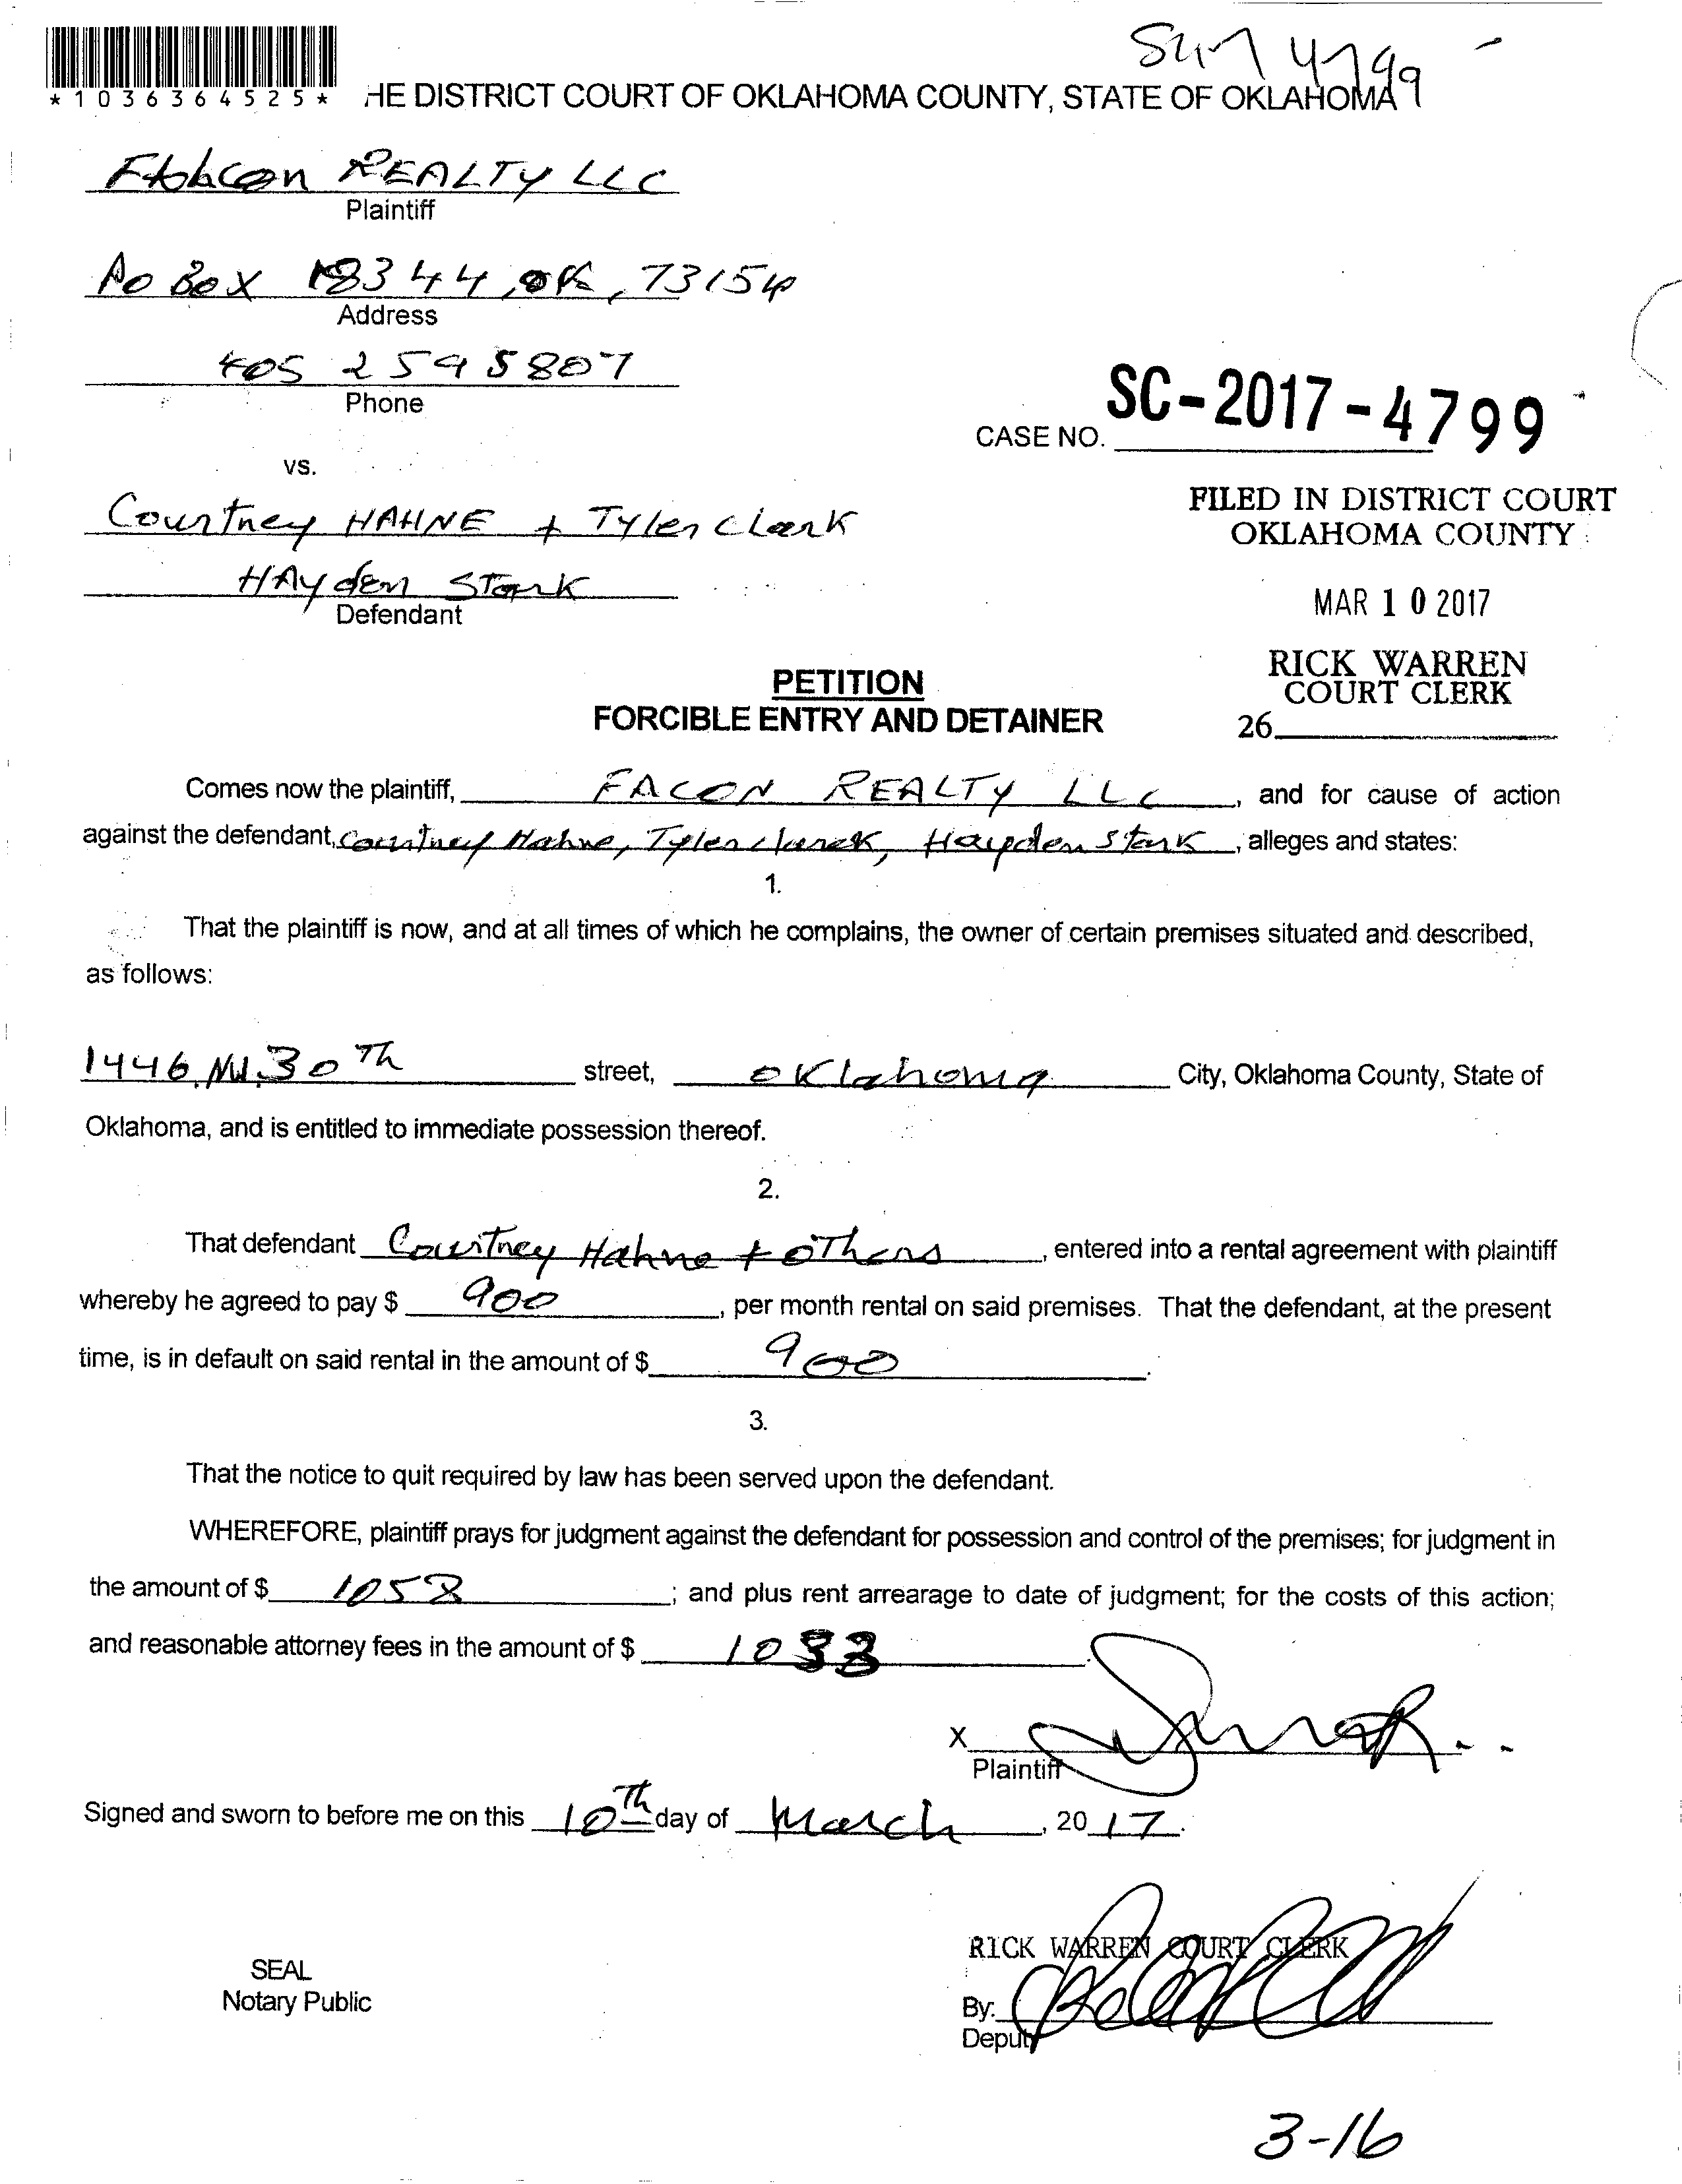 Sun 4799 -
*1036364525* HE DISTRICT COURT OF OKLAHOMA COUNTY, STATE OF OKLAHOMA
REALTY LLC
Plaintiff
PO BOX 18344, OK, 73154
Address
405 259 5807
Phone
CASE NO. SC-2017-4799
vs.
Courtney HAHNE + Tyler Clark
HAyden Stark
Defendant
FILED IN DISTRICT COURT
OKLAHOMA COUNTY
MAR 10 2017
RICK WARREN
COURT CLERK
26
PETITION
FORCIBLE ENTRY AND DETAINER
Comes now the plaintiff, FACON REALTY LLC, and for cause of action
against the defendant, Courtney Hahne, Tyler Clark, Hayden Stark, alleges and states:
1.
That the plaintiff is now, and at all times of which he complains, the owner of certain premises situated and described,
as follows:
1446 NW 30Th street, OKlahoma City, Oklahoma County, State of
Oklahoma, and is entitled to immediate possession thereof.
2.
That defendant Courtney Hahne + oThers, entered into a rental agreement with plaintiff
whereby he agreed to pay $ 900, per month rental on said premises. That the defendant, at the present
time, is in default on said rental in the amount of $ 900.
3.
That the notice to quit required by law has been served upon the defendant.
WHEREFORE, plaintiff prays for judgment against the defendant for possession and control of the premises; for judgment in
the amount of $ 1058; and plus rent arrearage to date of judgment; for the costs of this action;
and reasonable attorney fees in the amount of $ 1033.
X
Plaintiff
Signed and sworn to before me on this 10Th day of March, 2017.
RICK WARREN COURT CLERK
SEAL
Notary Public
By:
Deputy
3-16